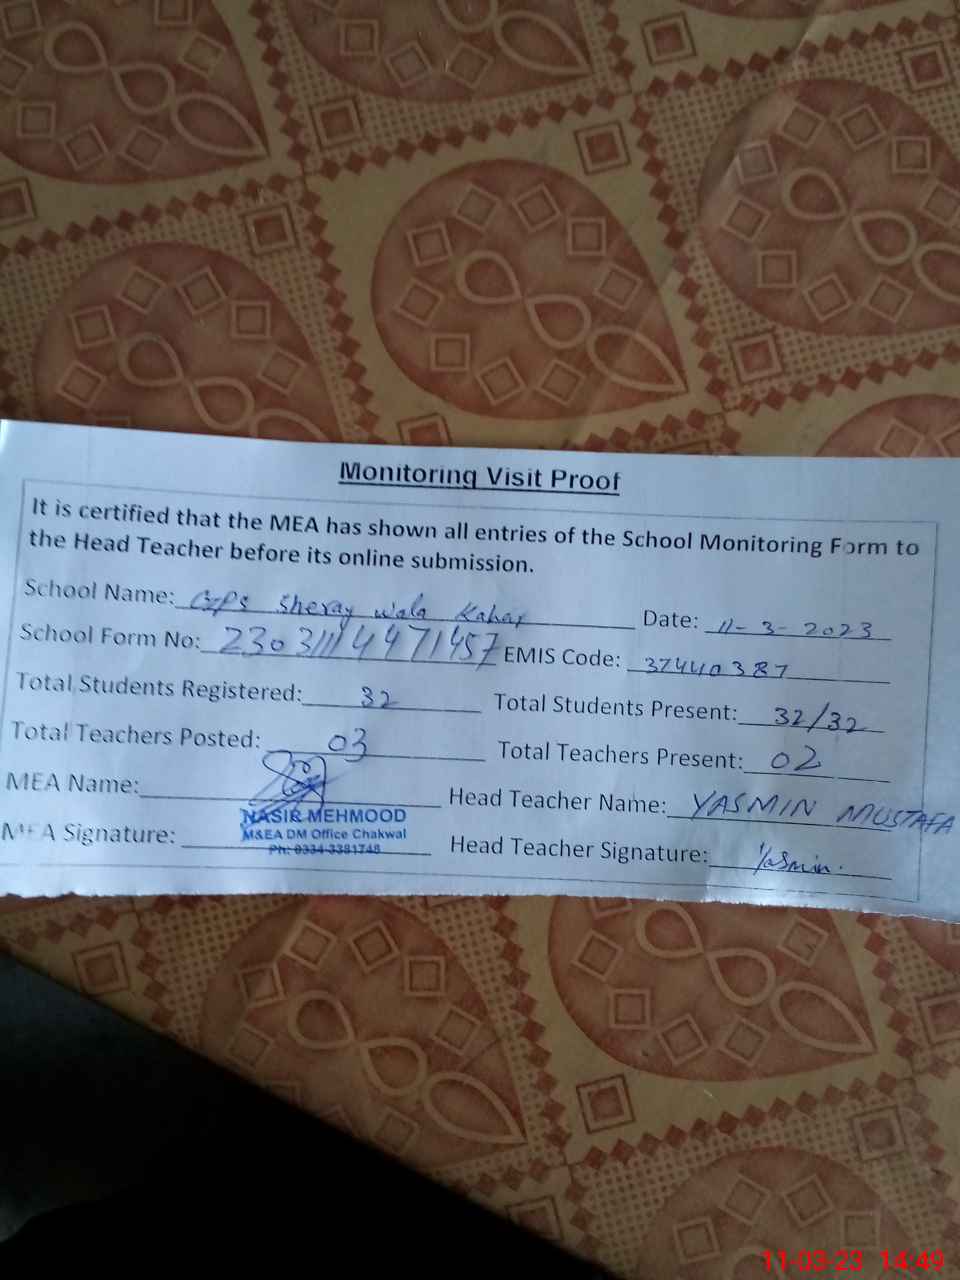 Monitoring Visit Proof
It is certified that the MEA has shown all entries of the School Monitoring Form to
the Head Teacher before its online submission.
School Name: GPS Sheray wala Kahar Date: 11-3-2023
School Form No: 23031114471457 EMIS Code: 37440387
Total Students Registered: 32 Total Students Present: 32/32
Total Teachers Posted: 03 Total Teachers Present: 02
MEA Name: Head Teacher Name: YASMIN MUSTAFA
NASIR MEHMOOD
M&EA DM Office Chakwal
Ph: 0334-3381748
MEA Signature: Head Teacher Signature: Yasmin.
11-03-23 14:49